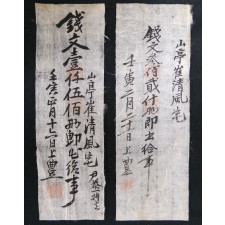 山亭崔清風宅
錢文叁佰貳什兩即出給事
壬寅二月二十日上豊
山亭崔清風宅
錢文壹仟伍佰兩即出給事
壬寅四月十七日上豊